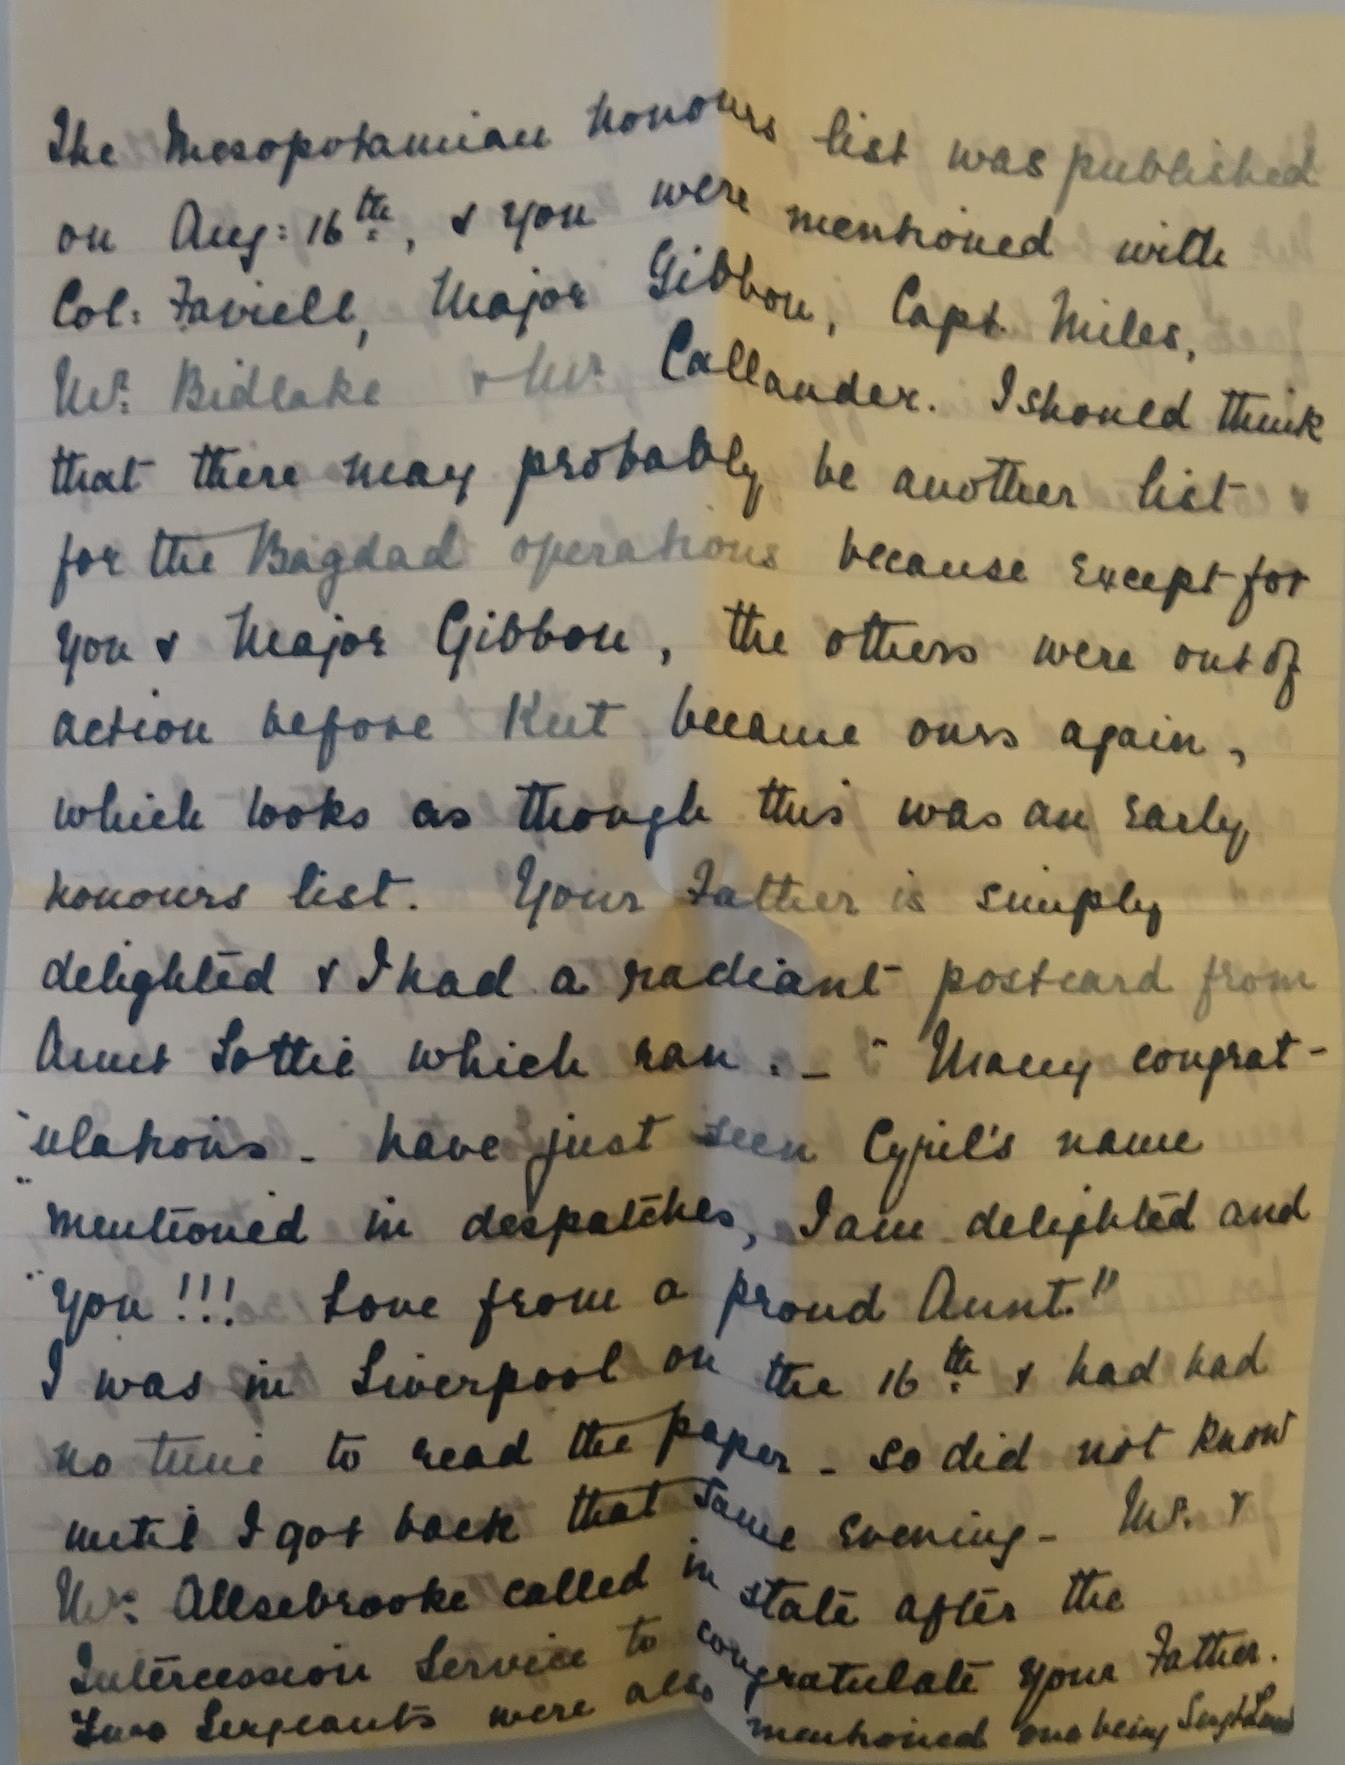 The Mesopotamian honours list was published
on Aug: 16th., & you were mentioned with
Col: Faviell, Major Gibbon, Capt. Miles,
Mr. Bidlake & Mr. Callander. I should think
that there may probably be another list
for the Bagdad operations because except for
you & Major Gibbon, the others were out of
action before Kut became ours again,
which looks as though this was an early
honours list. Your Father is simply
delighted & I had a radiant postcard from
Aunt Lottie which ran :- " Many congrat-
"ulations - have just seen Cyril's name
"mentioned in despatches, I am delighted and
"you!!! Love from a proud Aunt."
I was in Liverpool on the 16th. & had had
no time to read the paper - so did not know
until I got back that same evening - Mr. &
Mrs. Allsebrooke called in state after the
Intercession Service to congratulate your Father.
Two Sergeants were also mentioned one being Sergt